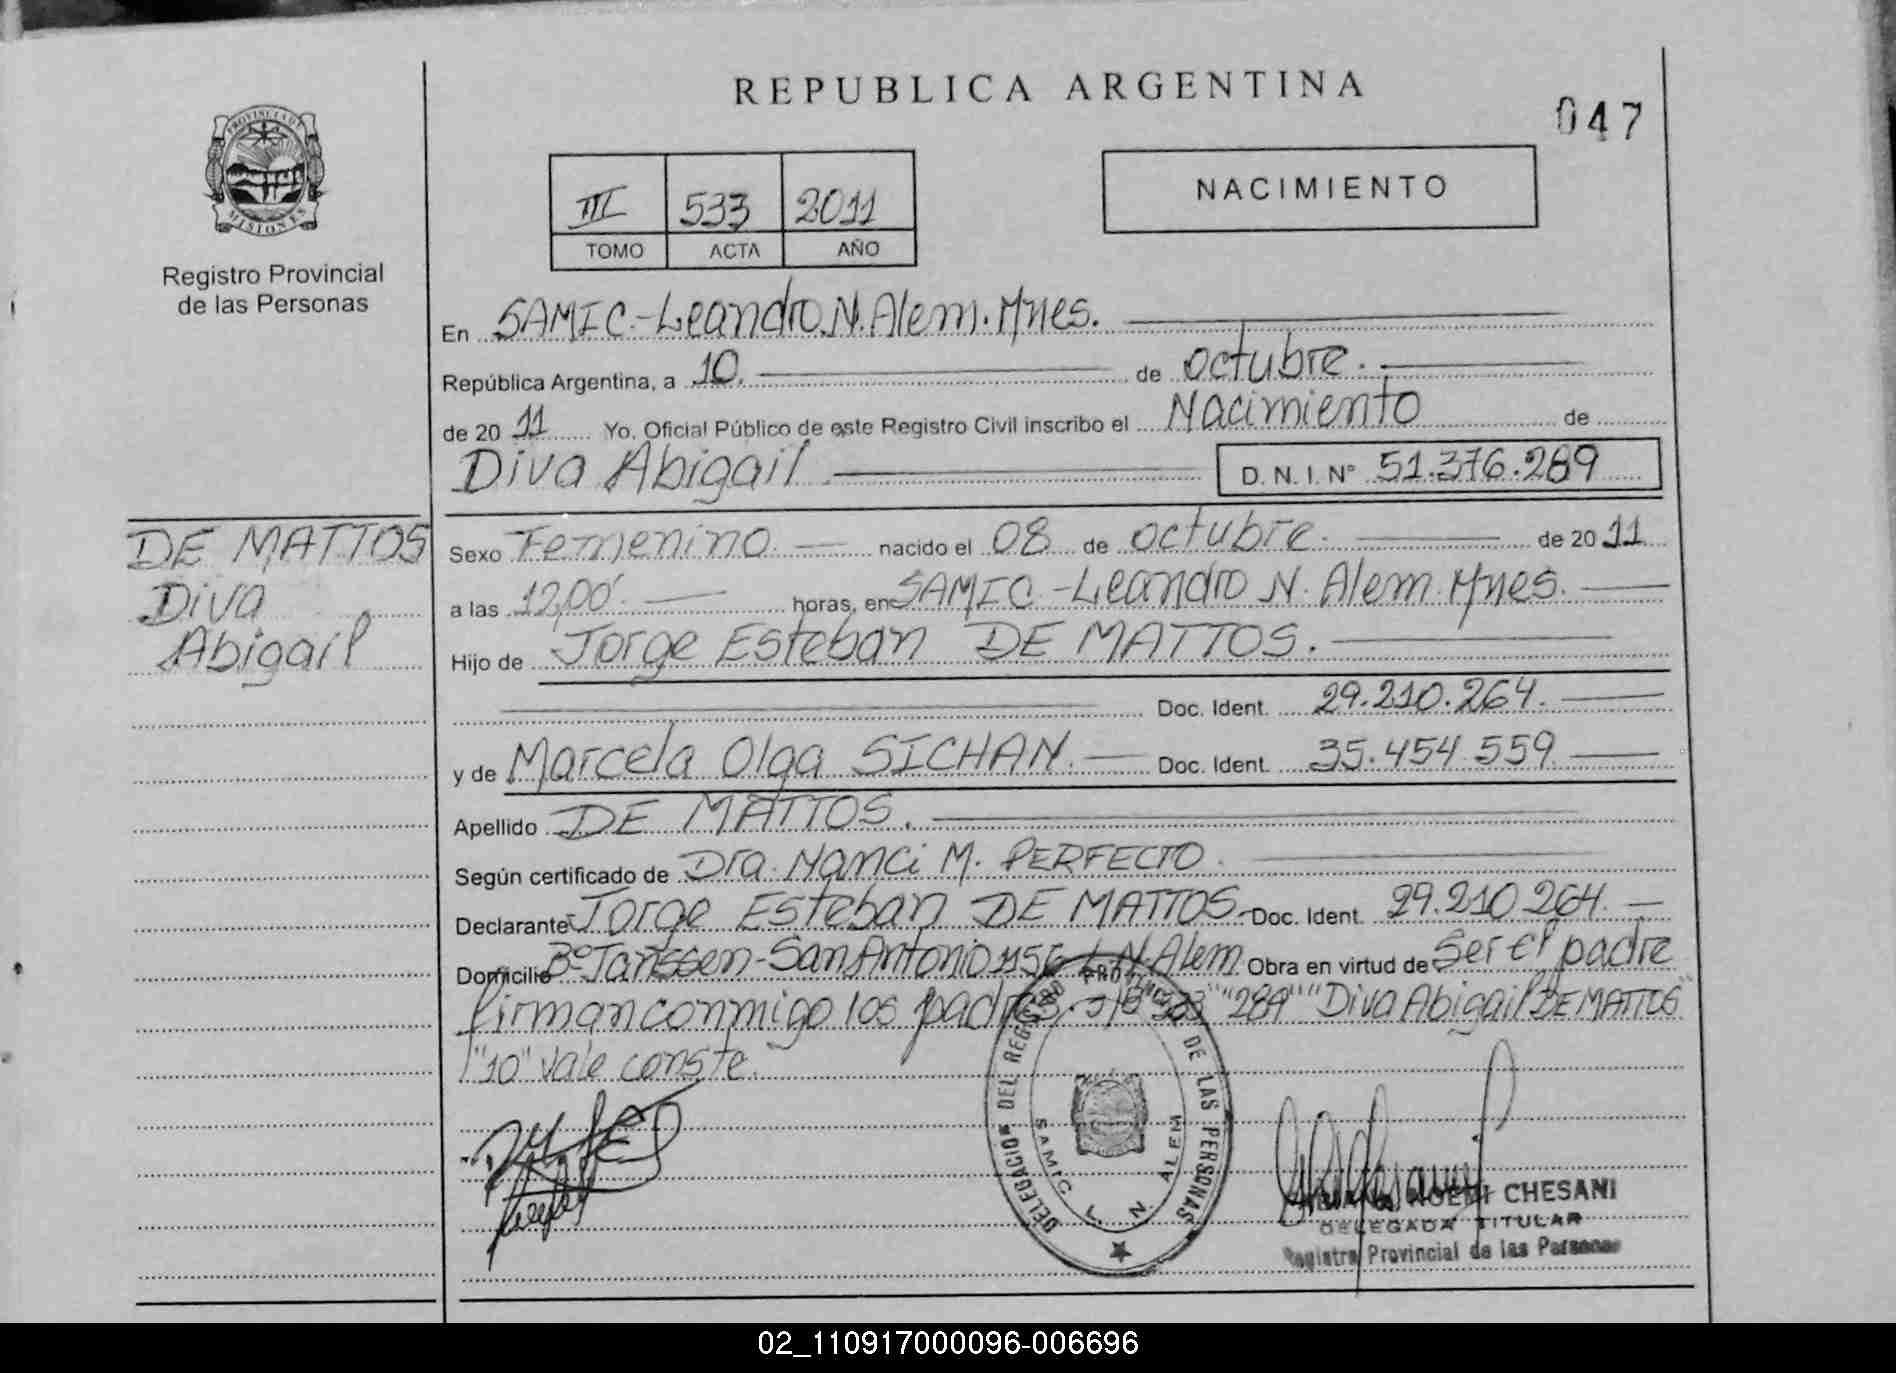 REPUBLICA ARGENTINA
047
PROVINCIA DE
MISIONES
Registro Provincial
de las Personas
III 533 2011
TOMO ACTA AÑO
NACIMIENTO
En SAMIC.-Leandro.N.Alem.Mnes.
República Argentina, a 10. de octubre.
de 20 11 Yo, Oficial Público de este Registro Civil inscribo el Nacimiento de
Diva Abigail D.N.I. Nº 51.376.289
DE MATTOS
Diva
Abigail
Sexo Femenino nacido el 08 de octubre. de 20 11
a las 12,00. horas, en SAMIC.-Leandro N. Alem.Mnes.
Hijo de Jorge Esteban DE MATTOS.
Doc. Ident. 29.210.264.
y de Marcela Olga SICHAN. Doc. Ident. 35.454.559
Apellido DE MATTOS.
Según certificado de Dra. Nanci M. PERFECTO.
Declarante Jorge Esteban DE MATTOS. Doc. Ident. 29.210.264.
Domicilio Bº Janssen-San Antonio L.N.Alem Obra en virtud de Ser el padre
firman conmigo los padres. "289" "Diva Abigail DE MATTOS"
"10" vale conste.
DELEGACION DEL REGISTRO PROVINCIAL DE LAS PERSONAS
SAMIC L. N. ALEM
NOEMI CHESANI
DELEGADA TITULAR
Registro Provincial de las Personas
02_110917000096-006696